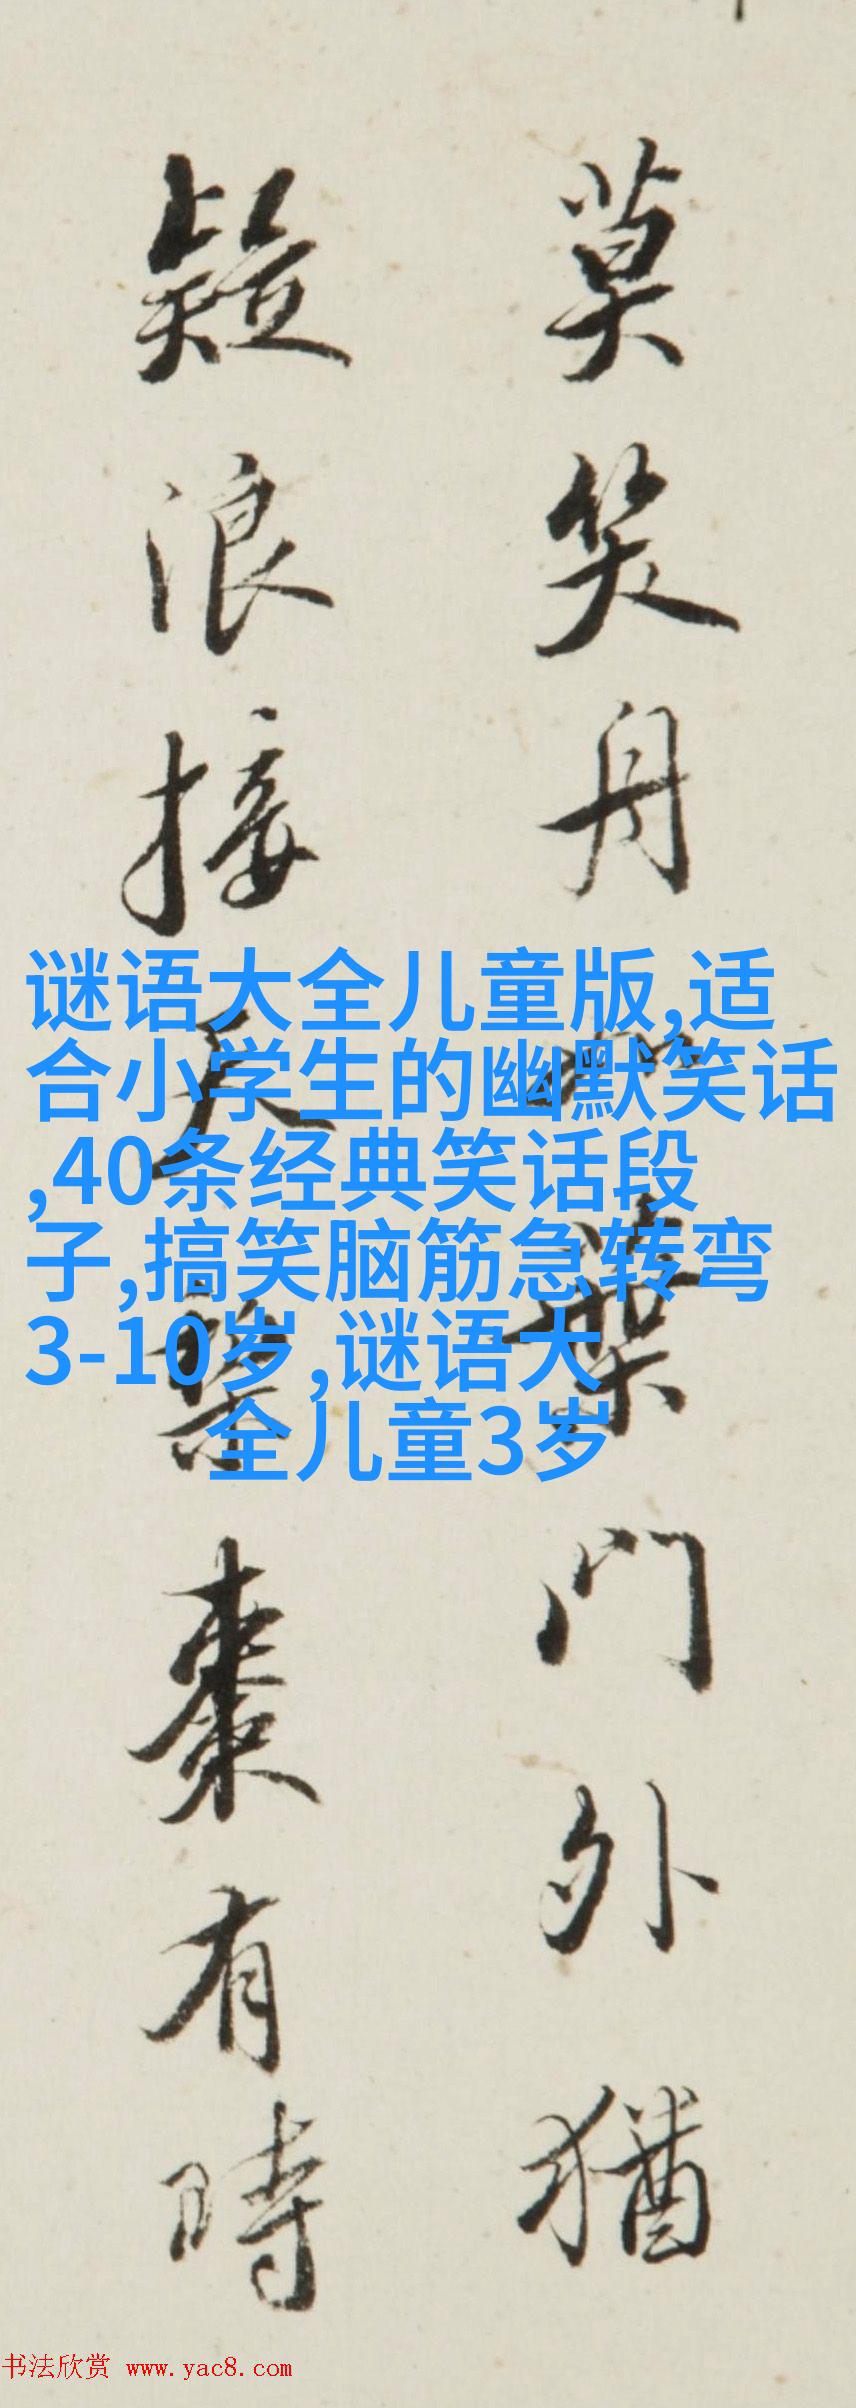 莫笑舟
門外猶
疑浪接天
棗有時
谜语大全儿童版,适
合小学生的幽默笑话
,40条经典笑话段
子,搞笑脑筋急转弯
3-10岁,谜语大
全儿童3岁
书法欣赏 www.yac8.com